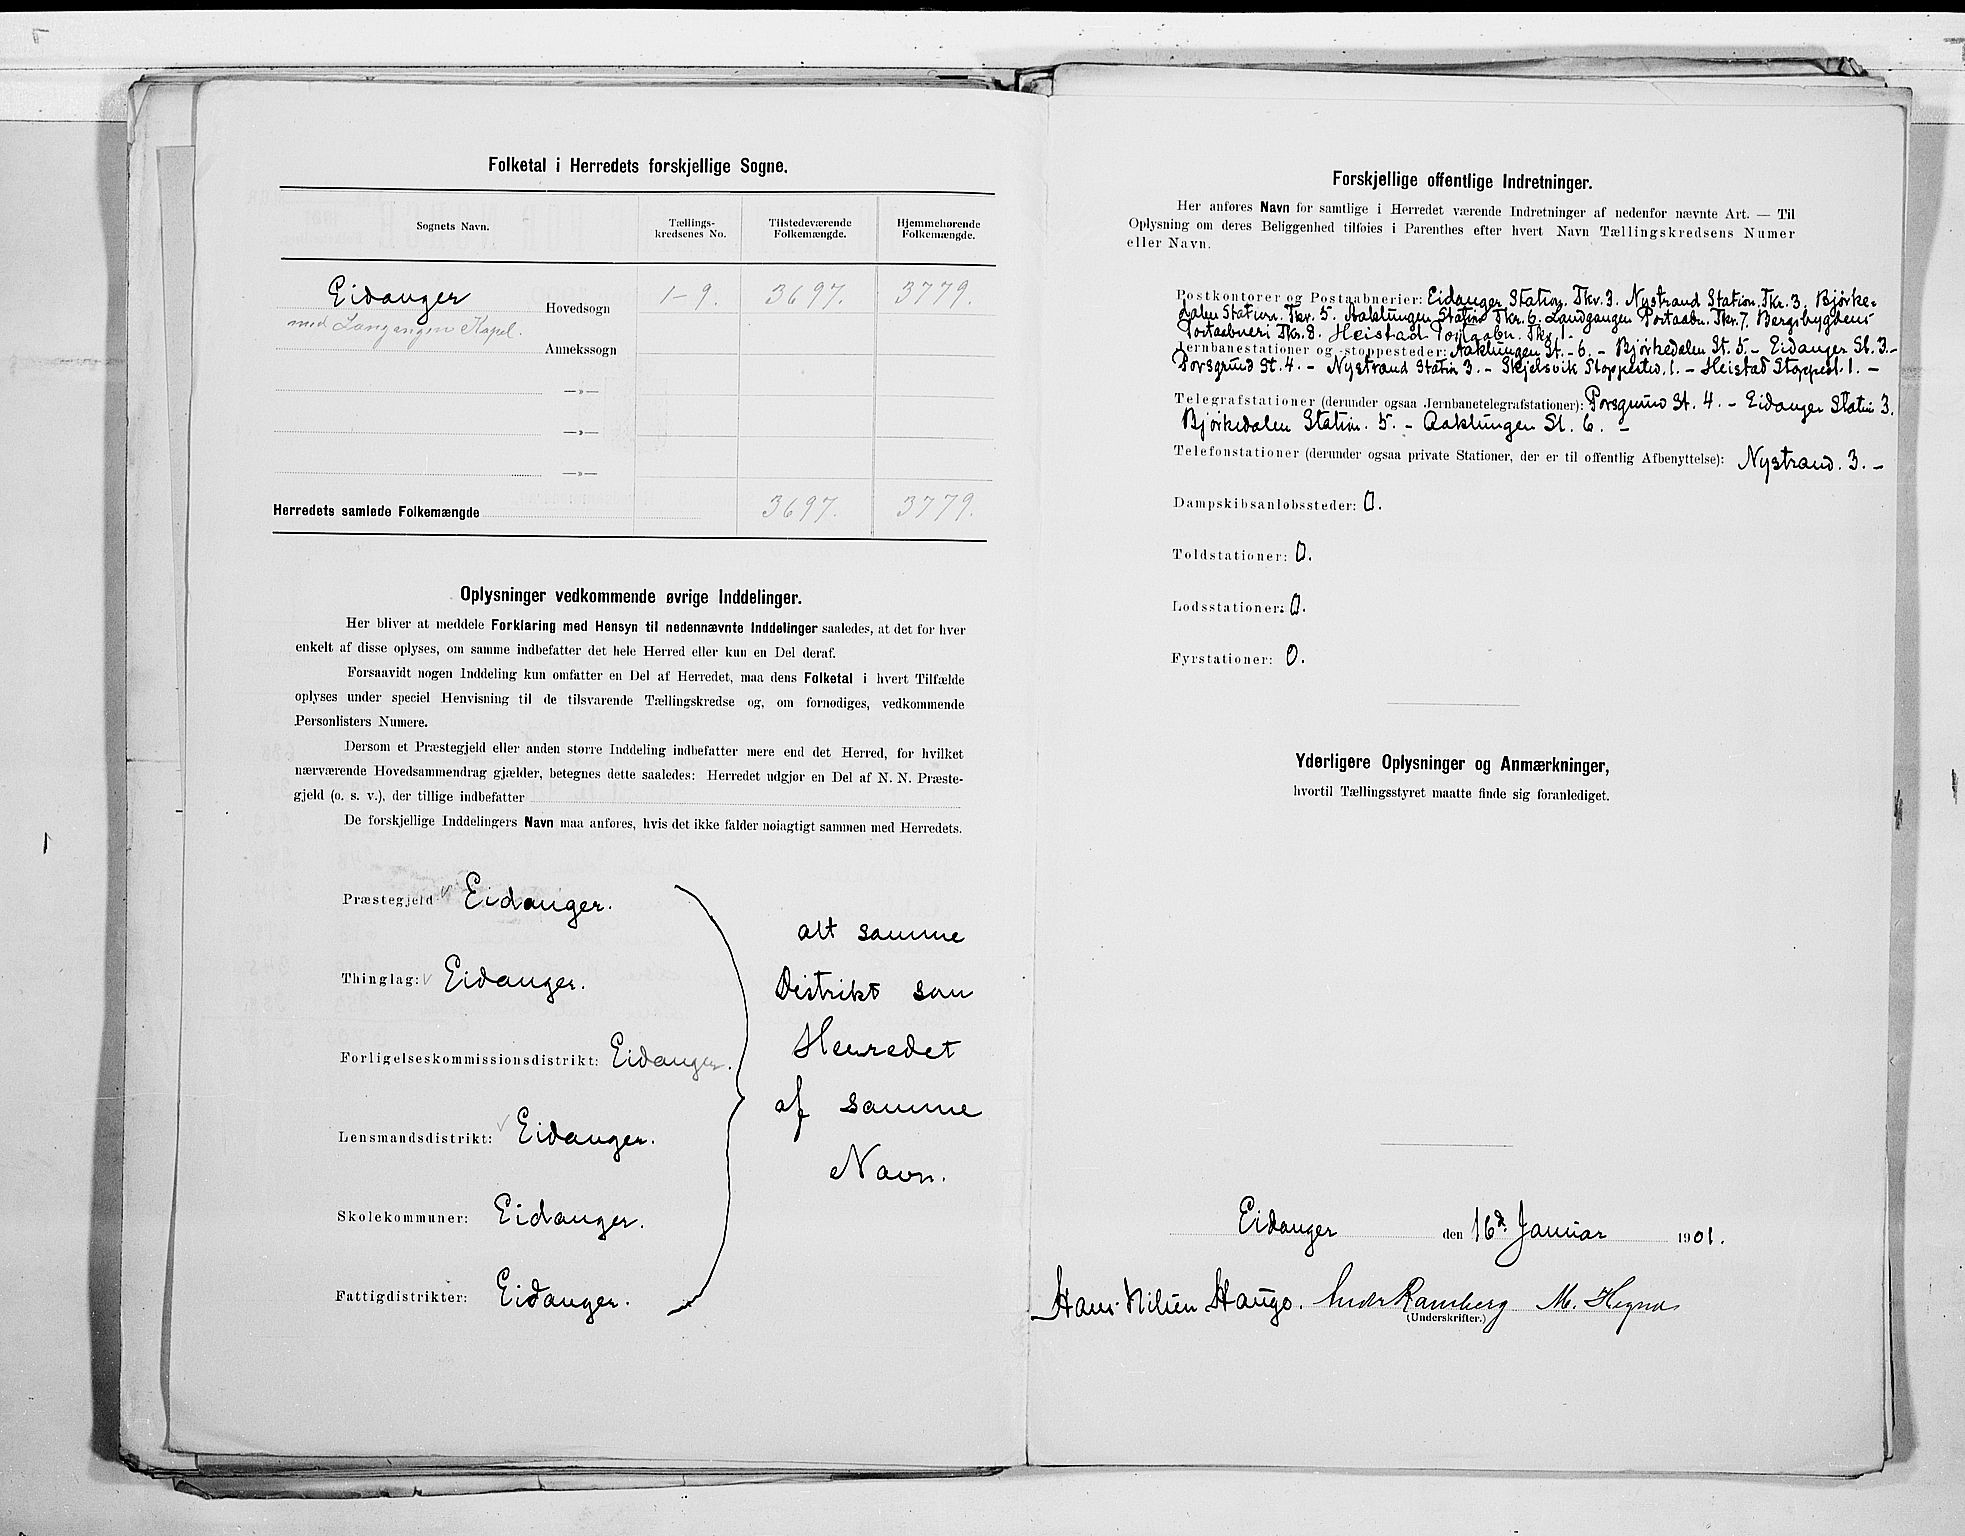 Folketal i Herredets forskjellige Sogne.
Sognets Navn. Tællings-kredsenes No. Tilstedeværende Folkemængde. Hjemmehørende Folkemængde.
Eidanger Hovedsogn 1-9. 3697. 3779.
med Langangen Kapel.
Annekssogn
—»—
—»—
—»—
Herredets samlede Folkemængde 3697. 3779.
Oplysninger vedkommende øvrige Inddelinger.
Her bliver at meddele Forklaring med Hensyn til nedennævnte Inddelinger saaledes, at det for hver
enkelt af disse oplyses, om samme indbefatter det hele Herred eller kun en Del deraf.
Forsaavidt nogen Inddeling kun omfatter en Del af Herredet, maa dens Folketal i hvert Tilfælde
oplyses under speciel Henvisning til de tilsvarende Tællingskredse og, om fornødiges, vedkommende
Personlisters Numere.
Dersom et Præstegjeld eller anden større Inddeling indbefatter mere end det Herred, for hvilket
nærværende Hovedsammendrag gjælder, betegnes dette saaledes: Herredet udgjør en Del af N. N. Præste-
gjeld (o. s. v.), der tillige indbefatter
De forskjellige Inddelingers Navn maa anføres, hvis det ikke falder nøiagtigt sammen med Herredets.
Præstegjeld Eidanger.
Thinglag: Eidanger.
Forligelseskommissionsdistrikt: Eidanger.
Lensmandsdistrikt: Eidanger.
Skolekommuner: Eidanger.
Fattigdistrikter: Eidanger.
alt samme
Distrikt som
Herredet
af samme
Navn.
Forskjellige offentlige Indretninger.
Her anføres Navn for samtlige i Herredet værende Indretninger af nedenfor nævnte Art. — Til
Oplysning om deres Beliggenhed tilføies i Parenthes efter hvert Navn Tællingskredsens Numer
eller Navn.
Postkontorer og Postaabnerier: Eidanger Station. Tkr. 3. Nystrand Station. Tkr. 3. Bjørke-
dalen Station. Tkr. 5. Aaklungen Station Tkr. 6. Landgangen Postaabn. Tkr. 7. Bergsbygdens
Postaabneri Tkr. 8. Heistad Postaabn. Tkr. 1.
Jernbanestationer og -stoppesteder: Aaklungen St. - 6. - Bjørkedalen St. 5. - Eidanger St. 3. -
Porsgrund St. 4. - Nystrand Station 3. - Skjelsvik Stoppested. 1. - Heistad Stoppest. 1. -
Telegrafstationer (derunder ogsaa Jernbanetelegrafstationer): Porsgrund St. 4. - Eidanger Station 3.
Bjørkedalen Station. 5. - Aaklungen St. 6. -
Telefonstationer (derunder ogsaa private Stationer, der er til offentlig Afbenyttelse): Nystrand. 3. -
Dampskibsanløbssteder: 0.
Toldstationer: 0.
Lodsstationer: 0.
Fyrstationer: 0.
Yderligere Oplysninger og Anmærkninger,
hvortil Tællingsstyret maatte finde sig foranlediget.
Eidanger den 16d. Januar 1901.
Hans Nilsen Haugo. Ramberg M. Hegna
(Underskrifter.)